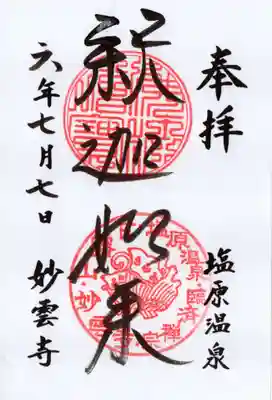 奉拝
塩原温泉
釈迦如来
六年七月七日
妙雲寺
塩原温泉・臨済禅宗
妙